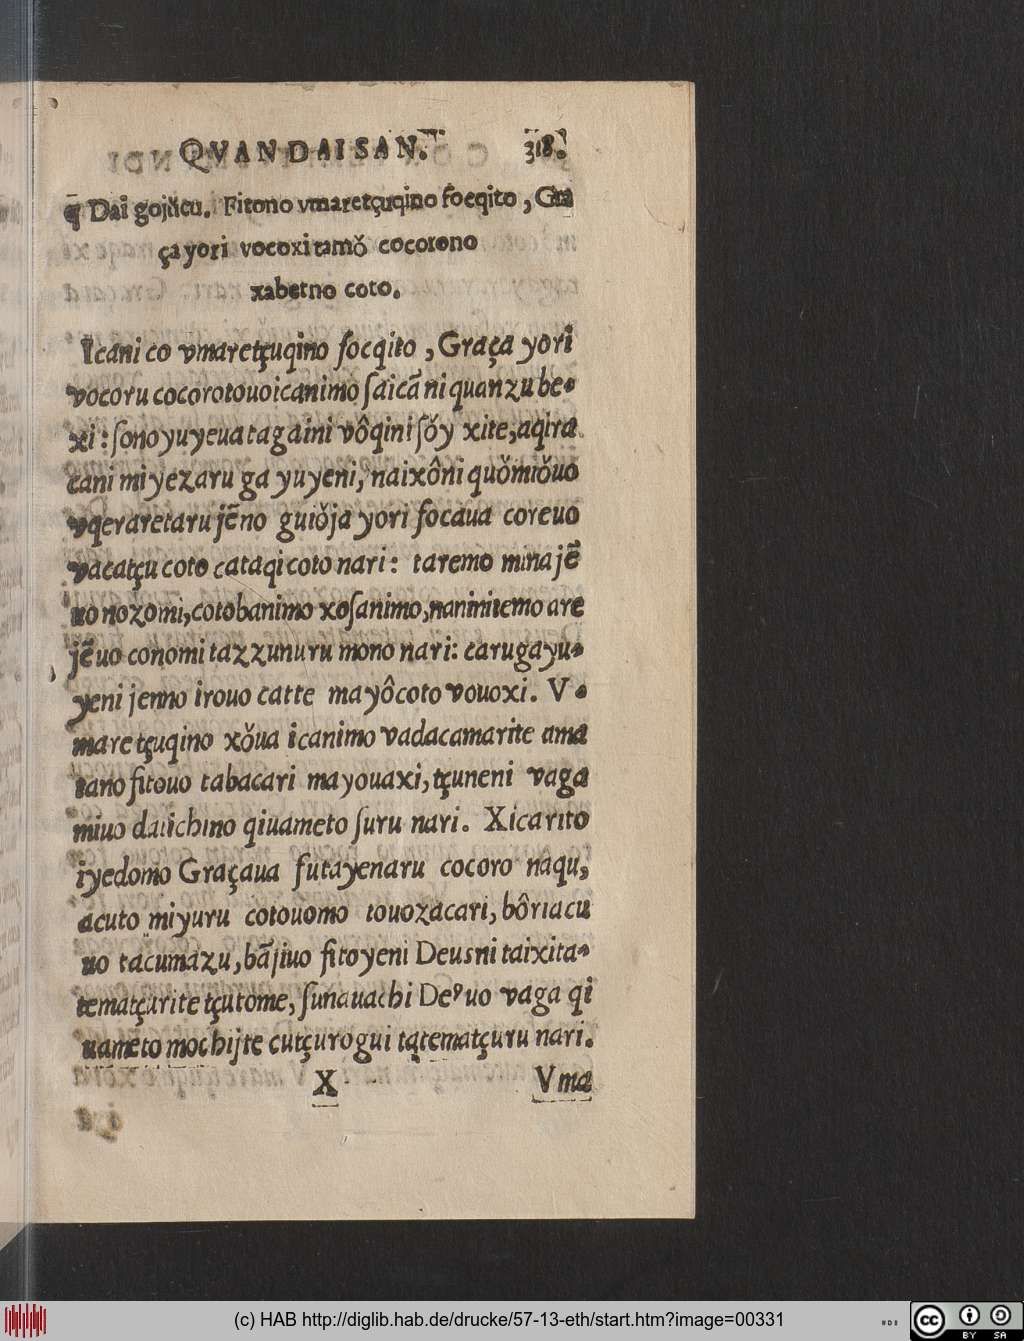 QVAN DAI SAN. 318.
¶ Dai gojŭcu. Fitono vmaretçuqino foeqito, Gra
ça yori vocoxi tamŏ cocorono
xabetno coto.
Icani co vmaretçuqino focqito, Graça yori
vocoru cocorotouo icanimo ſaicãni quanzu be-
xi: ſono yuye ua tagaini vôqini ſŏy xite, aqira
cani miyezaru ga yuyeni, naixôni quŏmiŏuo
vqeraretaru jẽno guiŏja yori focaua coreuo
vacatçu coto cataqi coto nari: taremo mina jẽ
uo nozomi, cotobanimo xoſanimo, naninitemo are
jẽuo conomi tazzunuru mono nari: caruga yu-
yeni jenno irouo catte mayô coto vouoxi. V-
maretçuqino xŏua icanimo vadacamarite ama
tano fitouo tabacari mayouaxi, tçuneni vaga
miuo daiichino qiuameto ſuru nari. Xicarito
iyedomo Graçaua futayenaru cocoro naqu,
acuto miyuru cotouomo touozacari, bôriacu
uo tacumazu, bãjiuo fitoyeni Deusni taixita-
tematçurite tçutome, ſunauachi Deꝰ uo vaga qi
uameto mochijte cutçurogui tatematçuru nari.
X Vma
(c) HAB http://diglib.hab.de/drucke/57-13-eth/start.htm?image=00331
cc BY SA